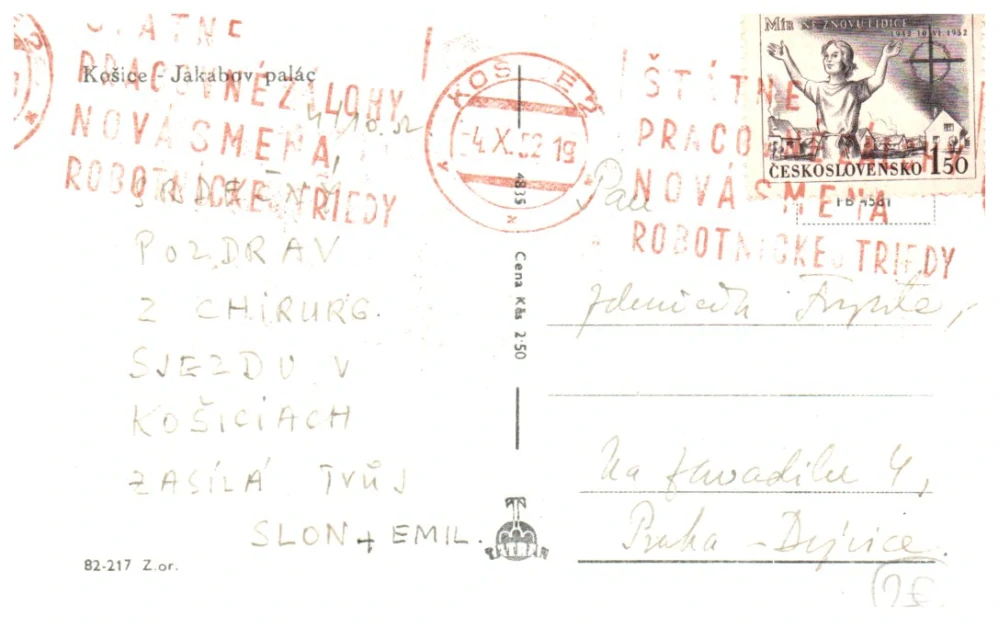 Košice - Jakabov palác
ŠTÁTNE
PRACOVNÉ ZÁLOHY
NOVÁ SMENA
ROBOTNÍCKEJ TRIEDY
4.10.52
SRDEČNÝ
POZDRAV
Z CHIRURG.
SJEZDU V
KOŠICIACH
ZASÍLÁ TVŮJ
SLON + EMIL.
82-217 Z.or.
4835
Cena Kčs 2·50
TATRAN
KOŠICE
-4.X.52 19
ŠTÁTNE
PRACOVNÉ ZÁLOHY
NOVÁ SMENA
ROBOTNÍCKEJ TRIEDY
Mír NE ZNOVU LIDICE
1942 10.VI. 1952
ČESKOSLOVENSKO 1.50
Pan
Na Zavadilce 4,
Praha - Dejvice.